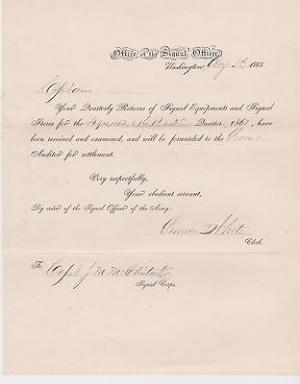 Office of the Signal Officer,
Washington, Aug 1863
Captain
Your Quarterly Returns of Signal Equipments and Signal
Stores for the Quarter, 1863, have
been received and examined, and will be forwarded to the Second
Auditor for settlement.
Very respectfully,
Your obedient servant,
By order of the Signal Officer of the Army:
White
Clerk.
To Capt J. M. McClintock
Signal Corps.